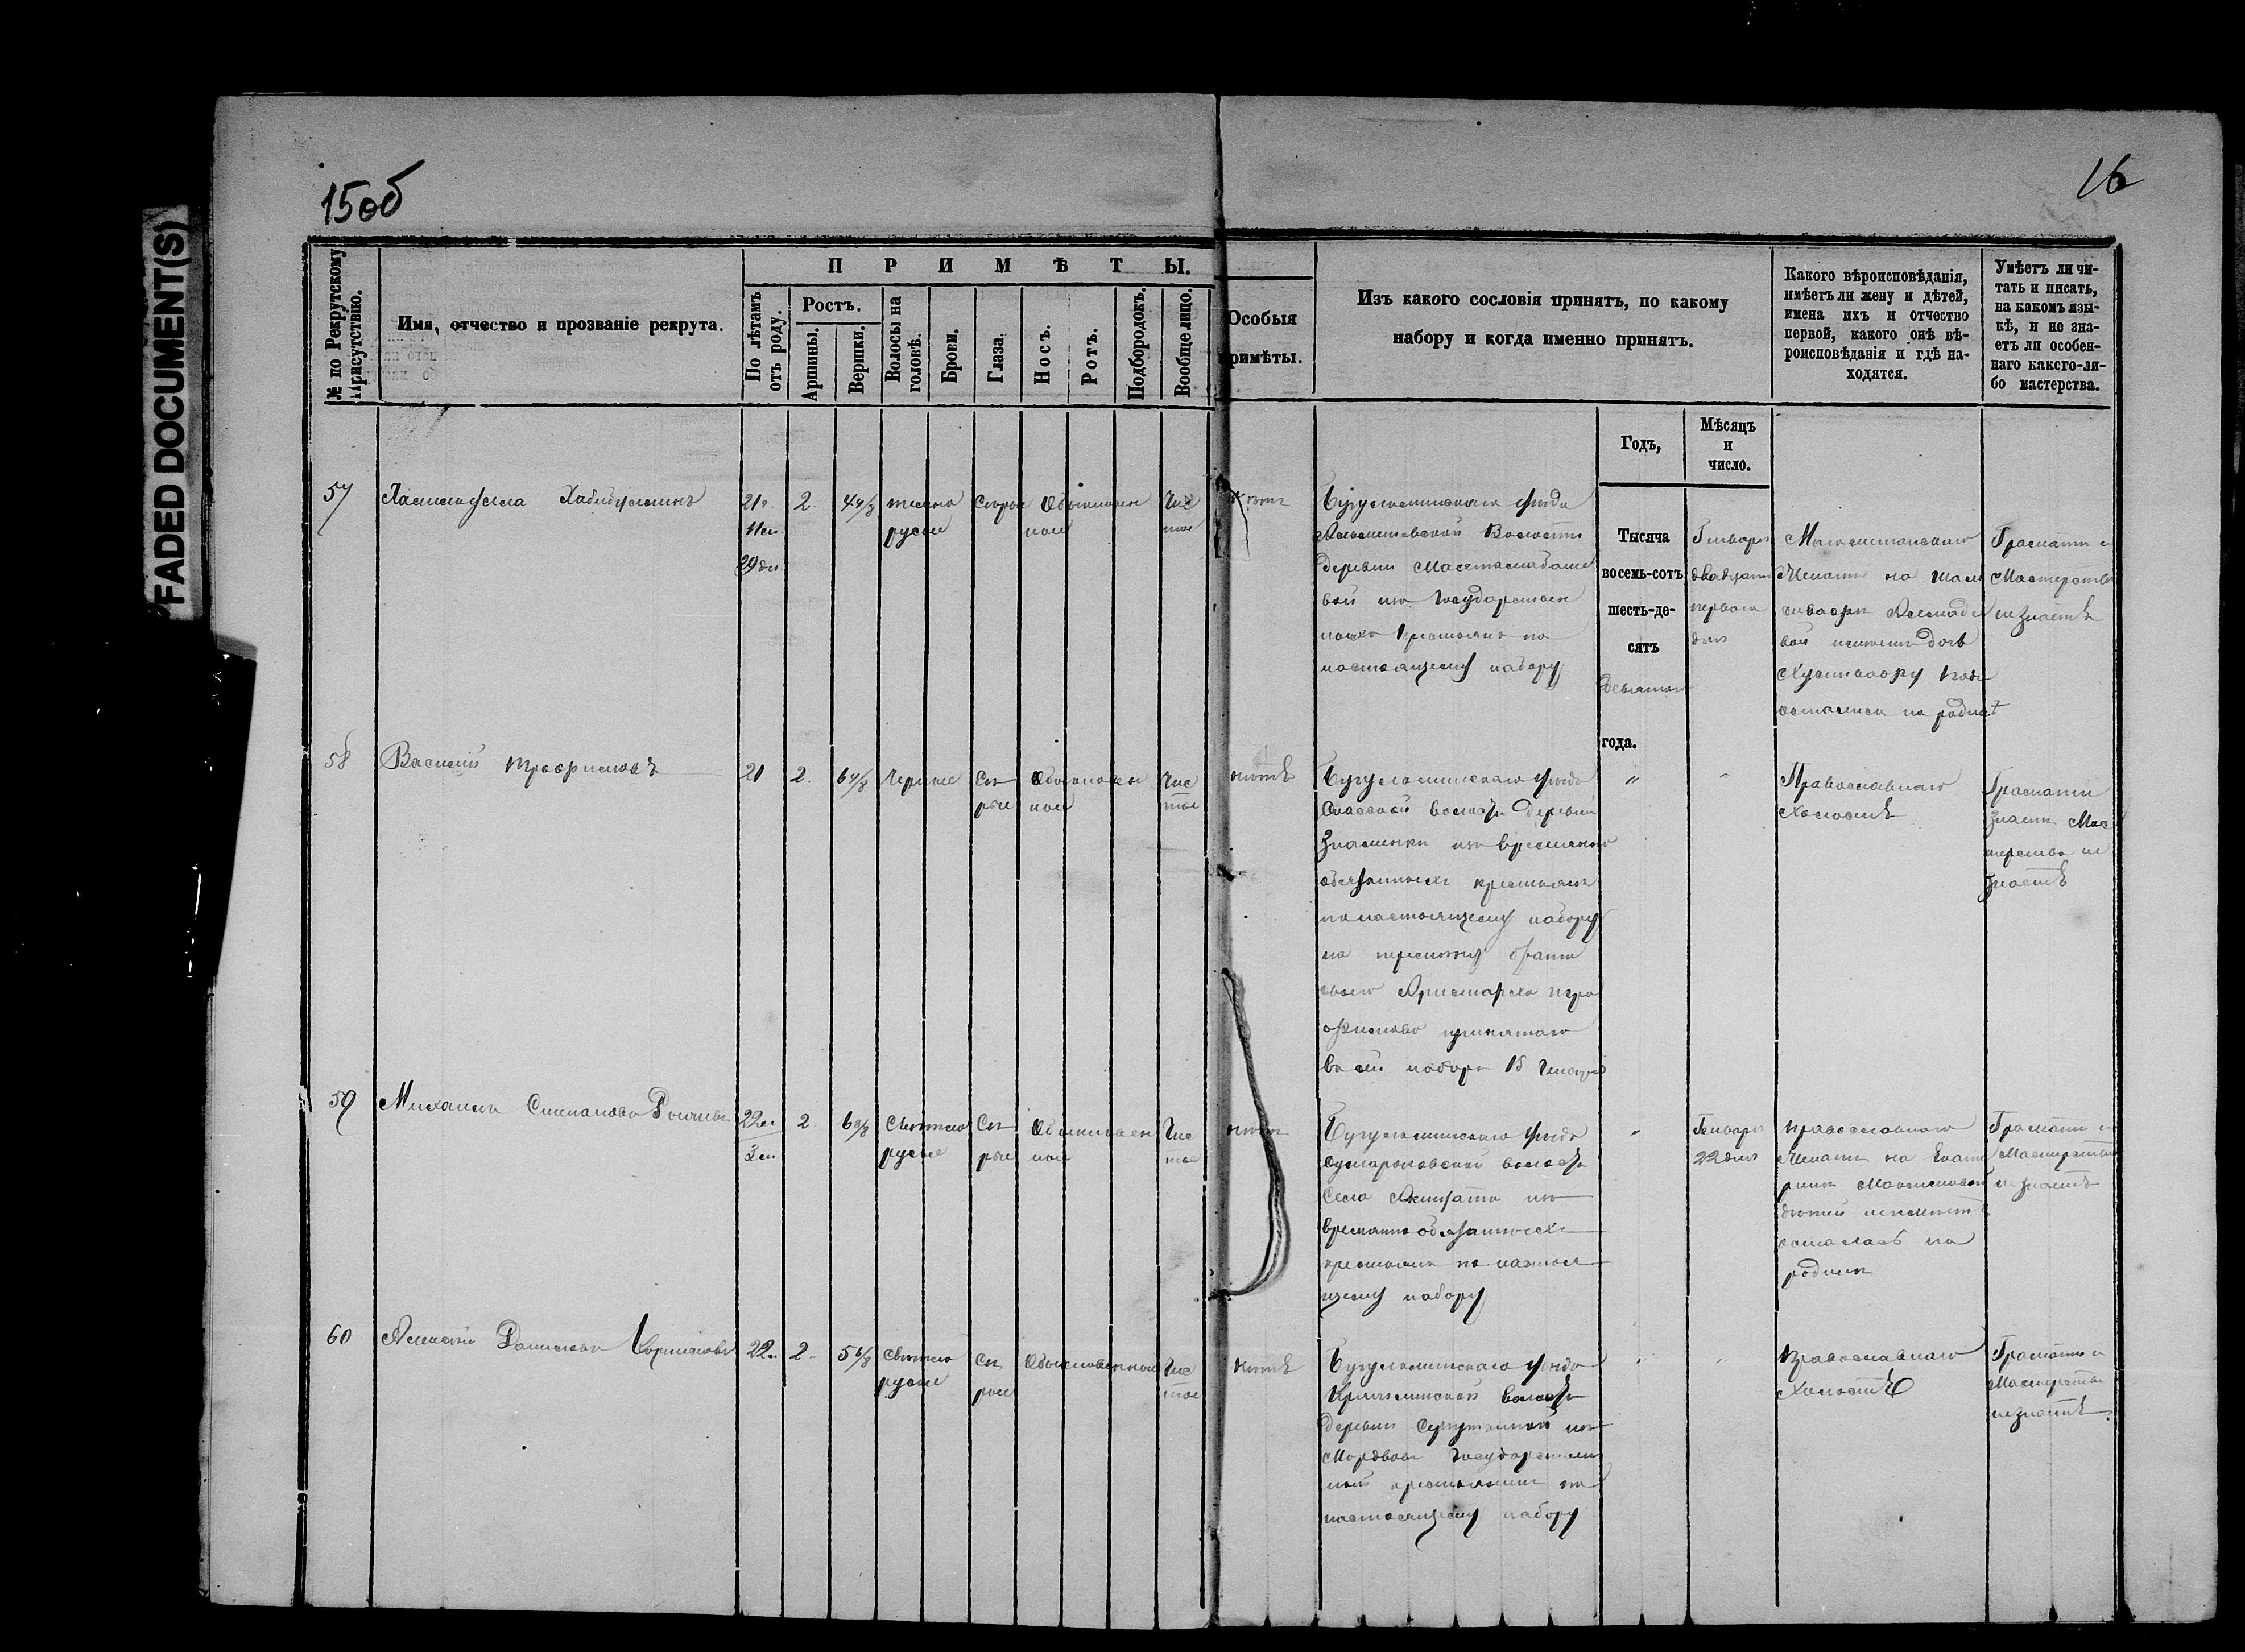 FADED DOCUMENT(S)
15об
16
№ по Рекрутскому Присутствію.
Имя, отчество и прозваніе рекрута.
ПРИМѢТЫ.
По лѣтамъ отъ роду.
Ростъ.
Аршины.
Вершки.
Волосы на головѣ.
Брови.
Глаза.
Носъ.
Ротъ.
Подбородокъ.
Вообще лицо.
Особыя
примѣты.
Изъ какого сословія принятъ, по какому
набору и когда именно принятъ.
Какого вѣроисповѣданія,
имѣетъ ли жену и дѣтей,
имена ихъ и отчество
первой, какого онѣ вѣ-
роисповѣданія и гдѣ на-
ходятся.
Умѣетъ ли чи-
тать и писать,
на какомъ язы-
кѣ, и не зна-
етъ ли особен-
наго какого-ли-
бо мастерства.
Годъ,
Мѣсяцъ
и
число.
Тысяча
восемь-сотъ
шесть-де-
сятъ
девятаго
года.
57
Хабибуллинъ
21
2
4 4/8
темно
русые
сѣрые
Обыкновен
ное
Чис
тое
нѣтъ
Бугульминскаго уѣзда
Волости
деревни
вой изъ Государствен
ныхъ крестьянъ по
настоящему набору
Генваря
двадцать
перваго
дня
Магометанскаго
Женатъ на
дочь
остались на родинѣ
Грамоти и
Мастерства
незнаетъ
58
Василій Трофимовъ
21
2
6 4/8
Черные
Сѣ
рые
Обыкновен
ное
Чис
тое
нѣтъ
Бугульминскаго уѣзда
Спасской волости деревни
Знаменки изъ временно
обязанныхъ крестьянъ
по настоящему набору
на перемѣну брата
своего Аристарха Тро
фимова принятаго
въ сей наборъ 15 Генваря
"
"
Православнаго
Холостъ
Грамоти
знаетъ Мас
терства не
знаетъ
59
Михаилъ Степановъ
22
2
6
Свѣтло
русые
Сѣ
рые
Обыкновен
ное
Чис
тое
нѣтъ
Бугульминскаго уѣзда
волости
Села изъ
временно обязанныхъ
крестьянъ по настоя
щему набору
"
Генваря
22 дня
православнаго
Женатъ на Екате
ринѣ Максимовой
дѣтей неимѣетъ
осталась на
родинѣ
Грамоти и
Мастерства
незнаетъ
60
Алексѣй Даниловъ
22
2
5 6/8
свѣтло
русые
Сѣ
рые
Обыкновенное
Чис
тое
нѣтъ
Бугульминскаго уѣзда
волости
деревни изъ
Мордвовъ Государствен
ныхъ крестьянъ по
настоящему набору
"
"
Православнаго
Холостъ
Грамоти и
Мастерства
незнаетъ